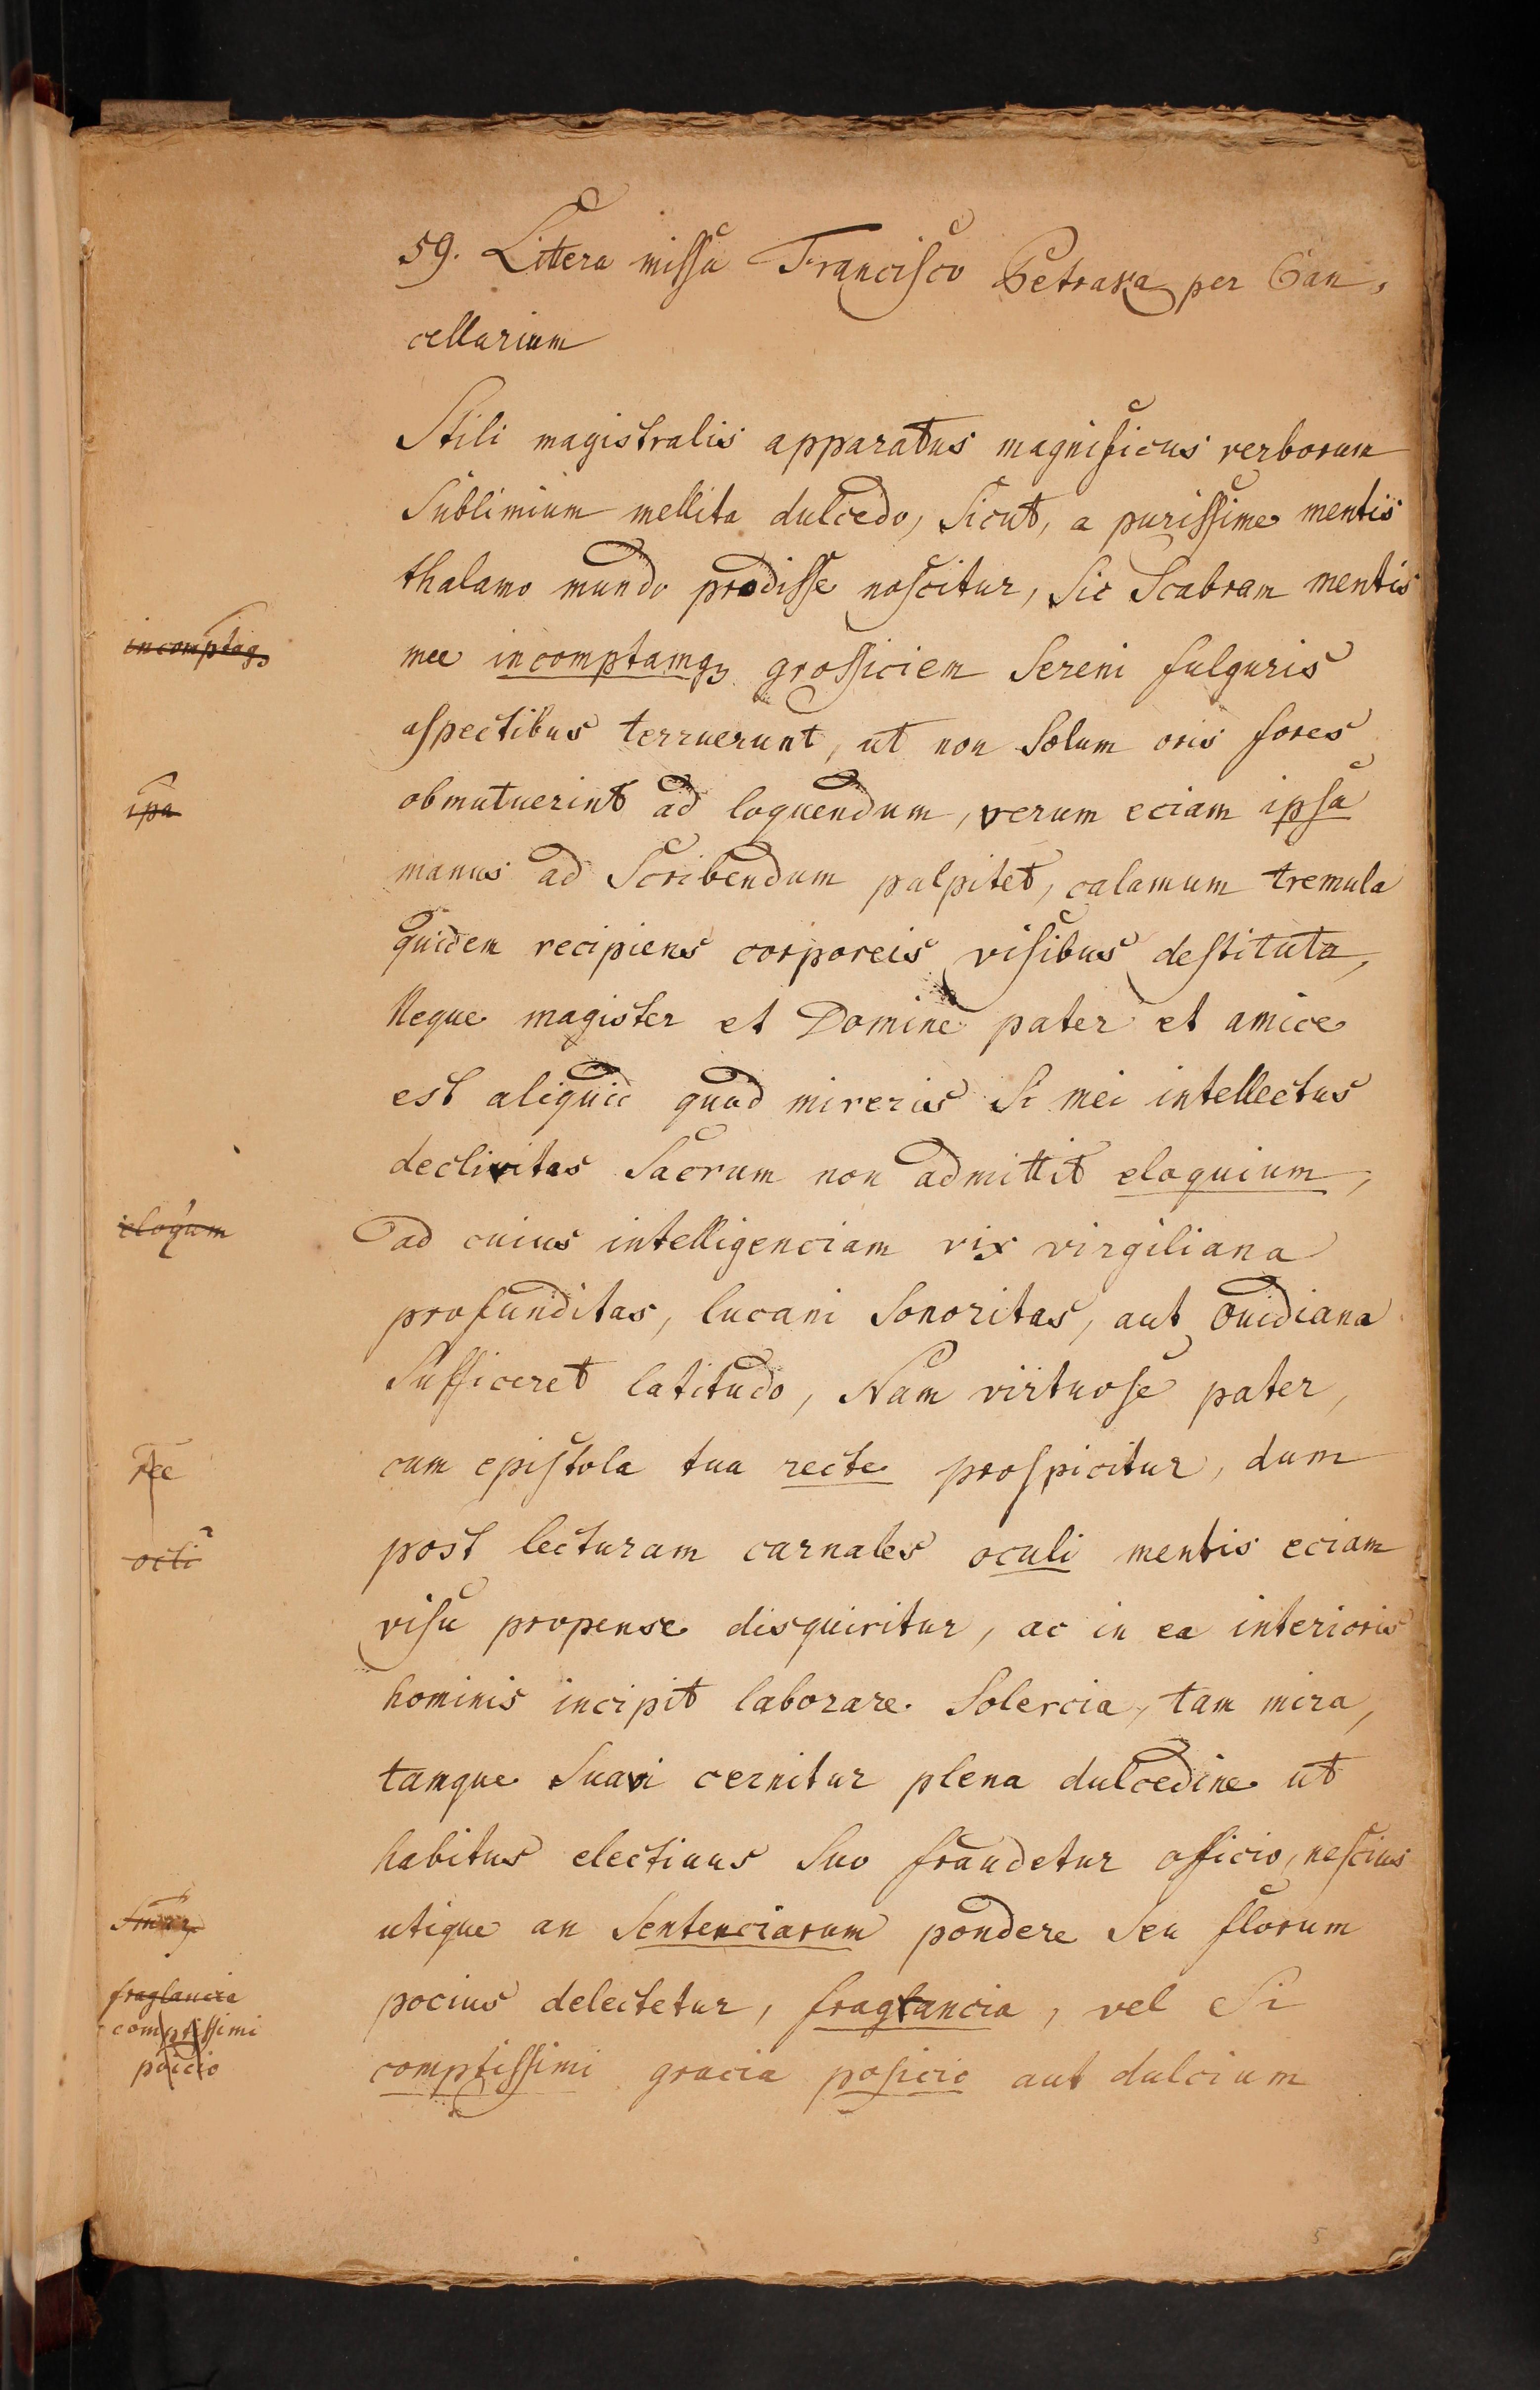 59. Littera missa Francisco Petraxa per Can,
cellarium
Stili magistralis apparatus magnificus verborum
sublimium mellita dulcedo, sicut, a purissime mentis
thalamo mundo prodisse noscitur, sic scabram mentis
incomptaqꝫ
mee incomptamqꝫ grossiciem sereni fulguris
aspectibus terruerunt, ut non solum oris fores
ipa
obmutuerint ad loquendum, verum eciam ipsa
manus ad scribendum palpitet, calamum tremula
quidem recipiens corporeis visibus destituta,
Neque magister et Domine pater et amice
est aliquid quod mireris si mei intellectus
declivitas sacrum non admittit eloquium,
eloqum
ad cuius intelligenciam vix virgiliana
profunditas, lucani sonoritas, aut ouidiana
sufficeret latitudo, Nam virtuose pater,
rce
cum epistola tua recte prospicitur, dum
octi
post lecturam carnales oculi mentis eciam
visu propense disquiritur, ac in ea interioris
hominis incipit laborare. solercia, tam mira,
tamque suavi cernitur plena dulcedine ut
habitus electiuus suo fraudetur officio, nescius
utique an sentenciarum pondere seu florum
fraglancia
pocius delectetur, fragrancia, vel si
comptissimi
poicio
comptissimi gracia posicio aut dulcium
5